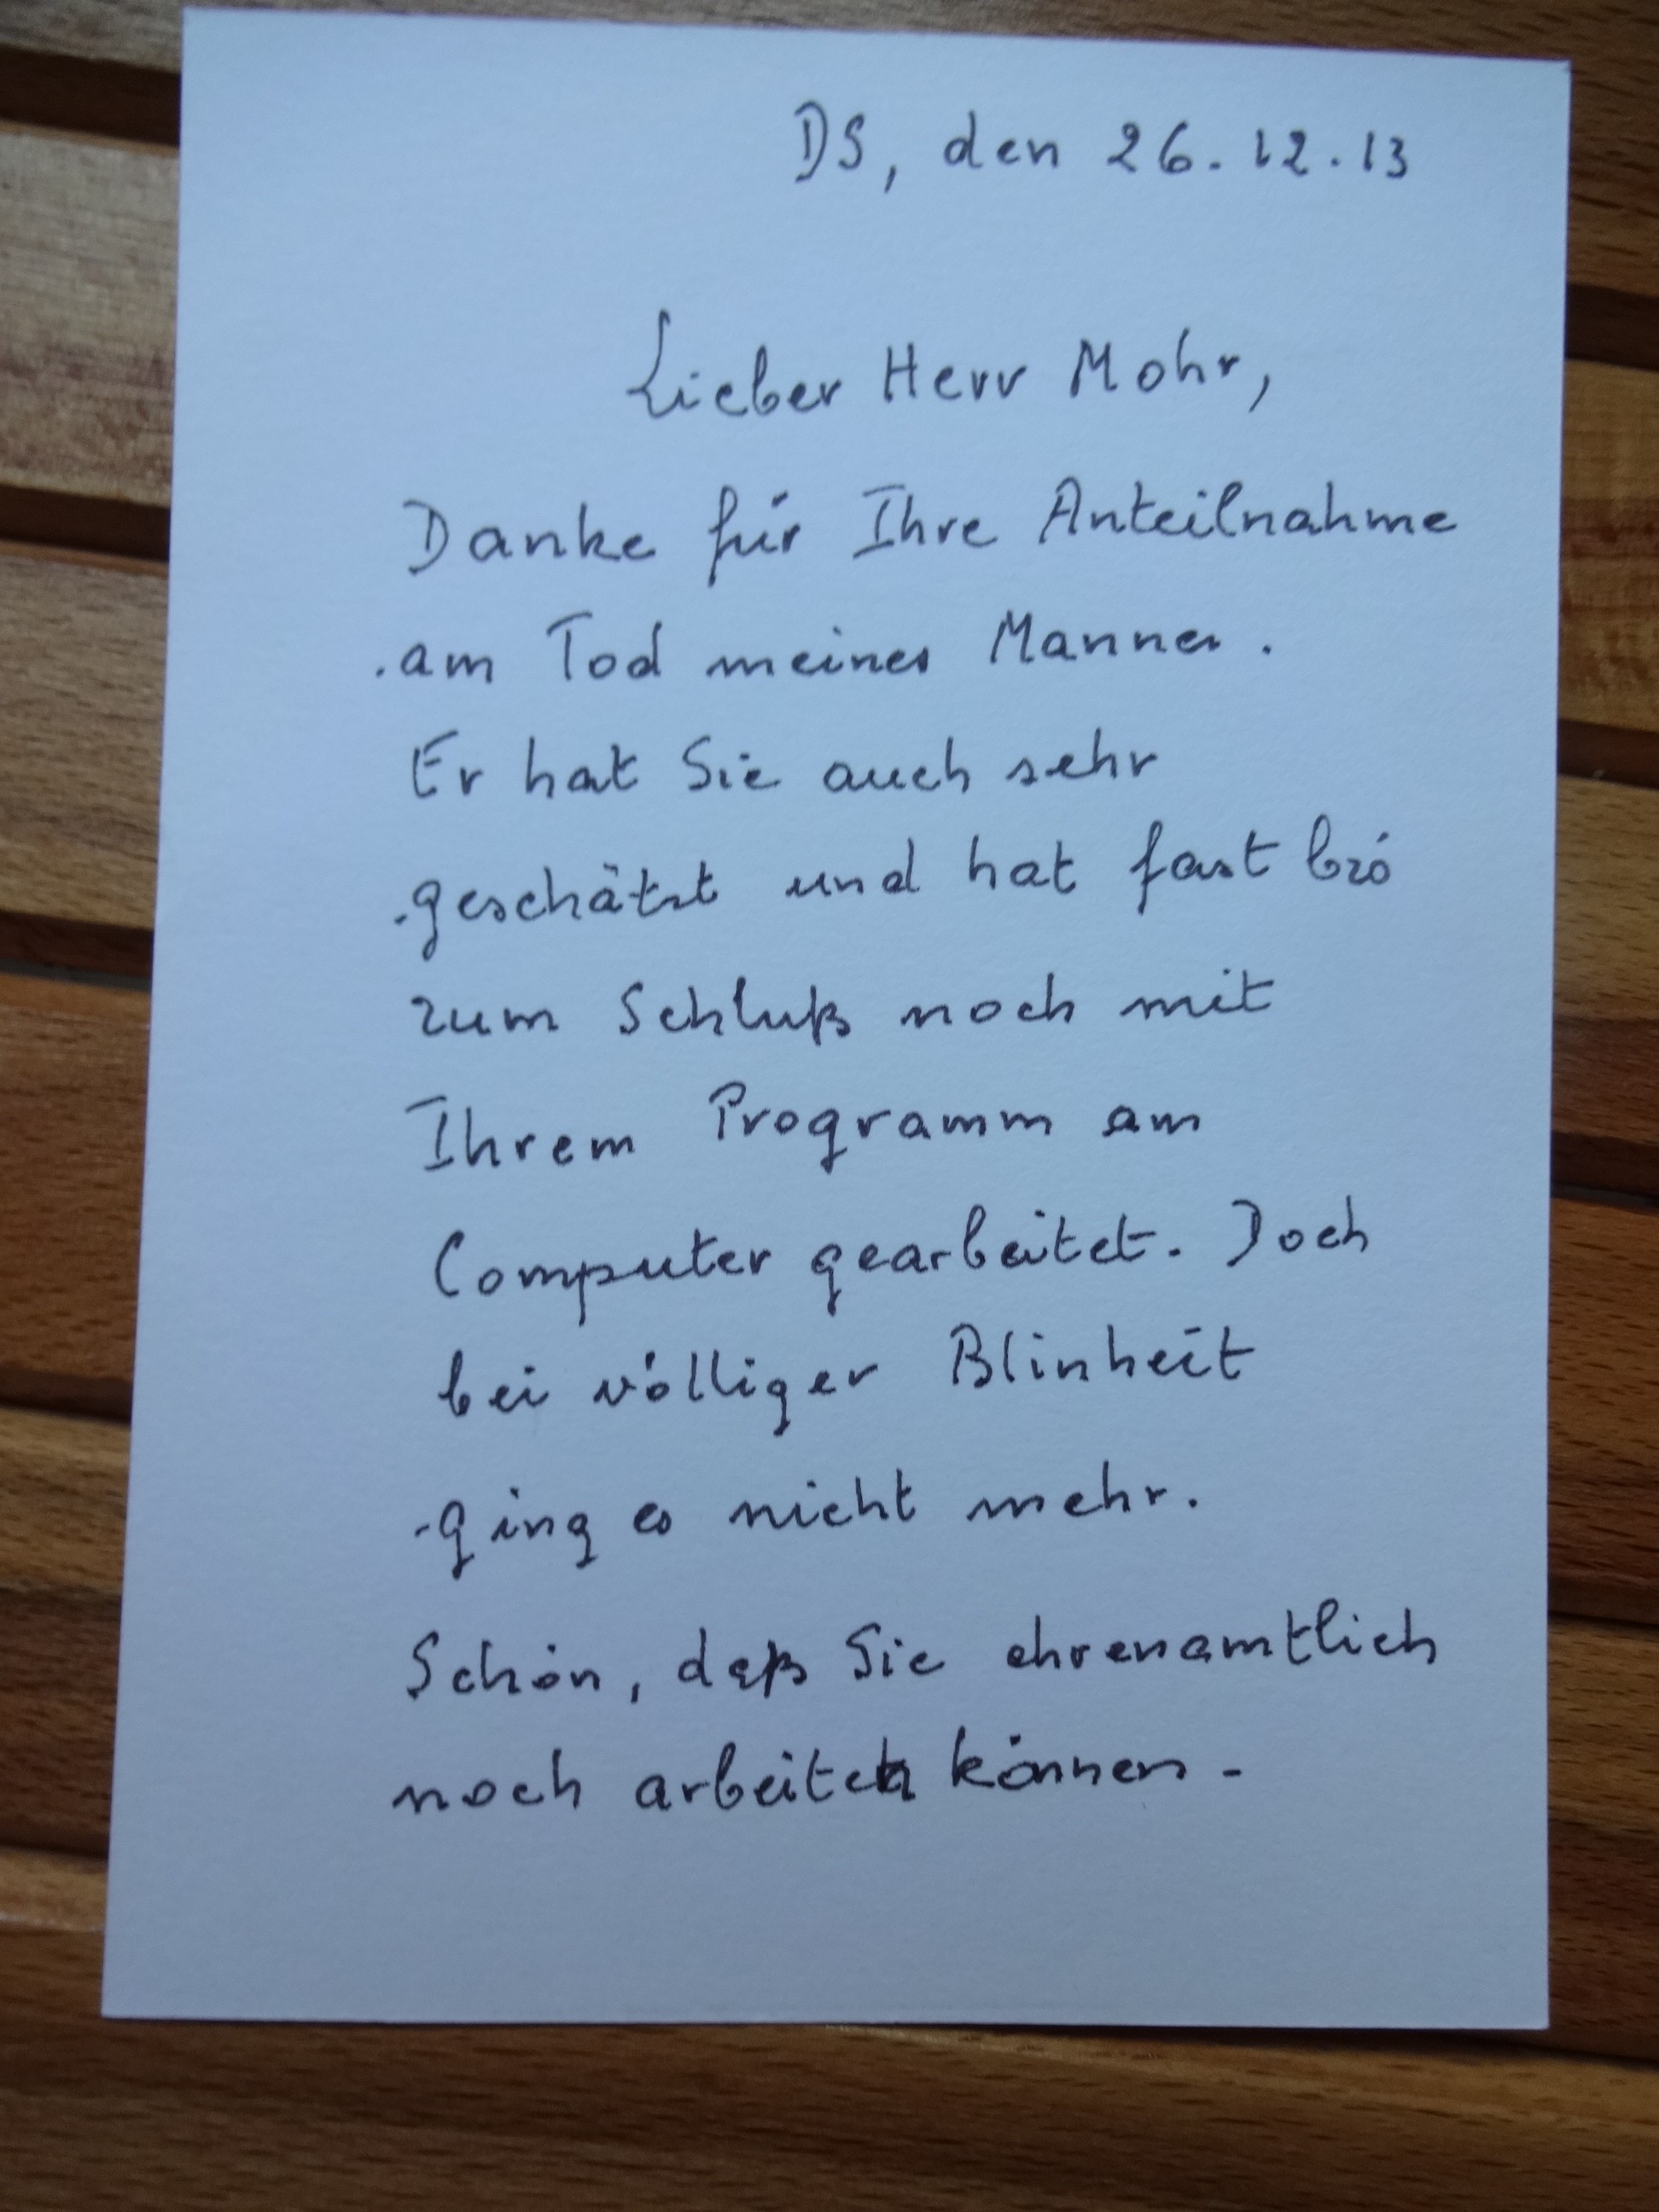 DS, den 26.12.13
Lieber Herr Mohr,
Danke für Ihre Anteilnahme
am Tod meines Mannes.
Er hat Sie auch sehr
geschätzt und hat fast bis
zum Schluß noch mit
Ihrem Programm am
Computer gearbeitet. Doch
bei völliger Blinheit
ging es nicht mehr.
Schön, daß Sie ehrenamtlich
noch arbeiten können.